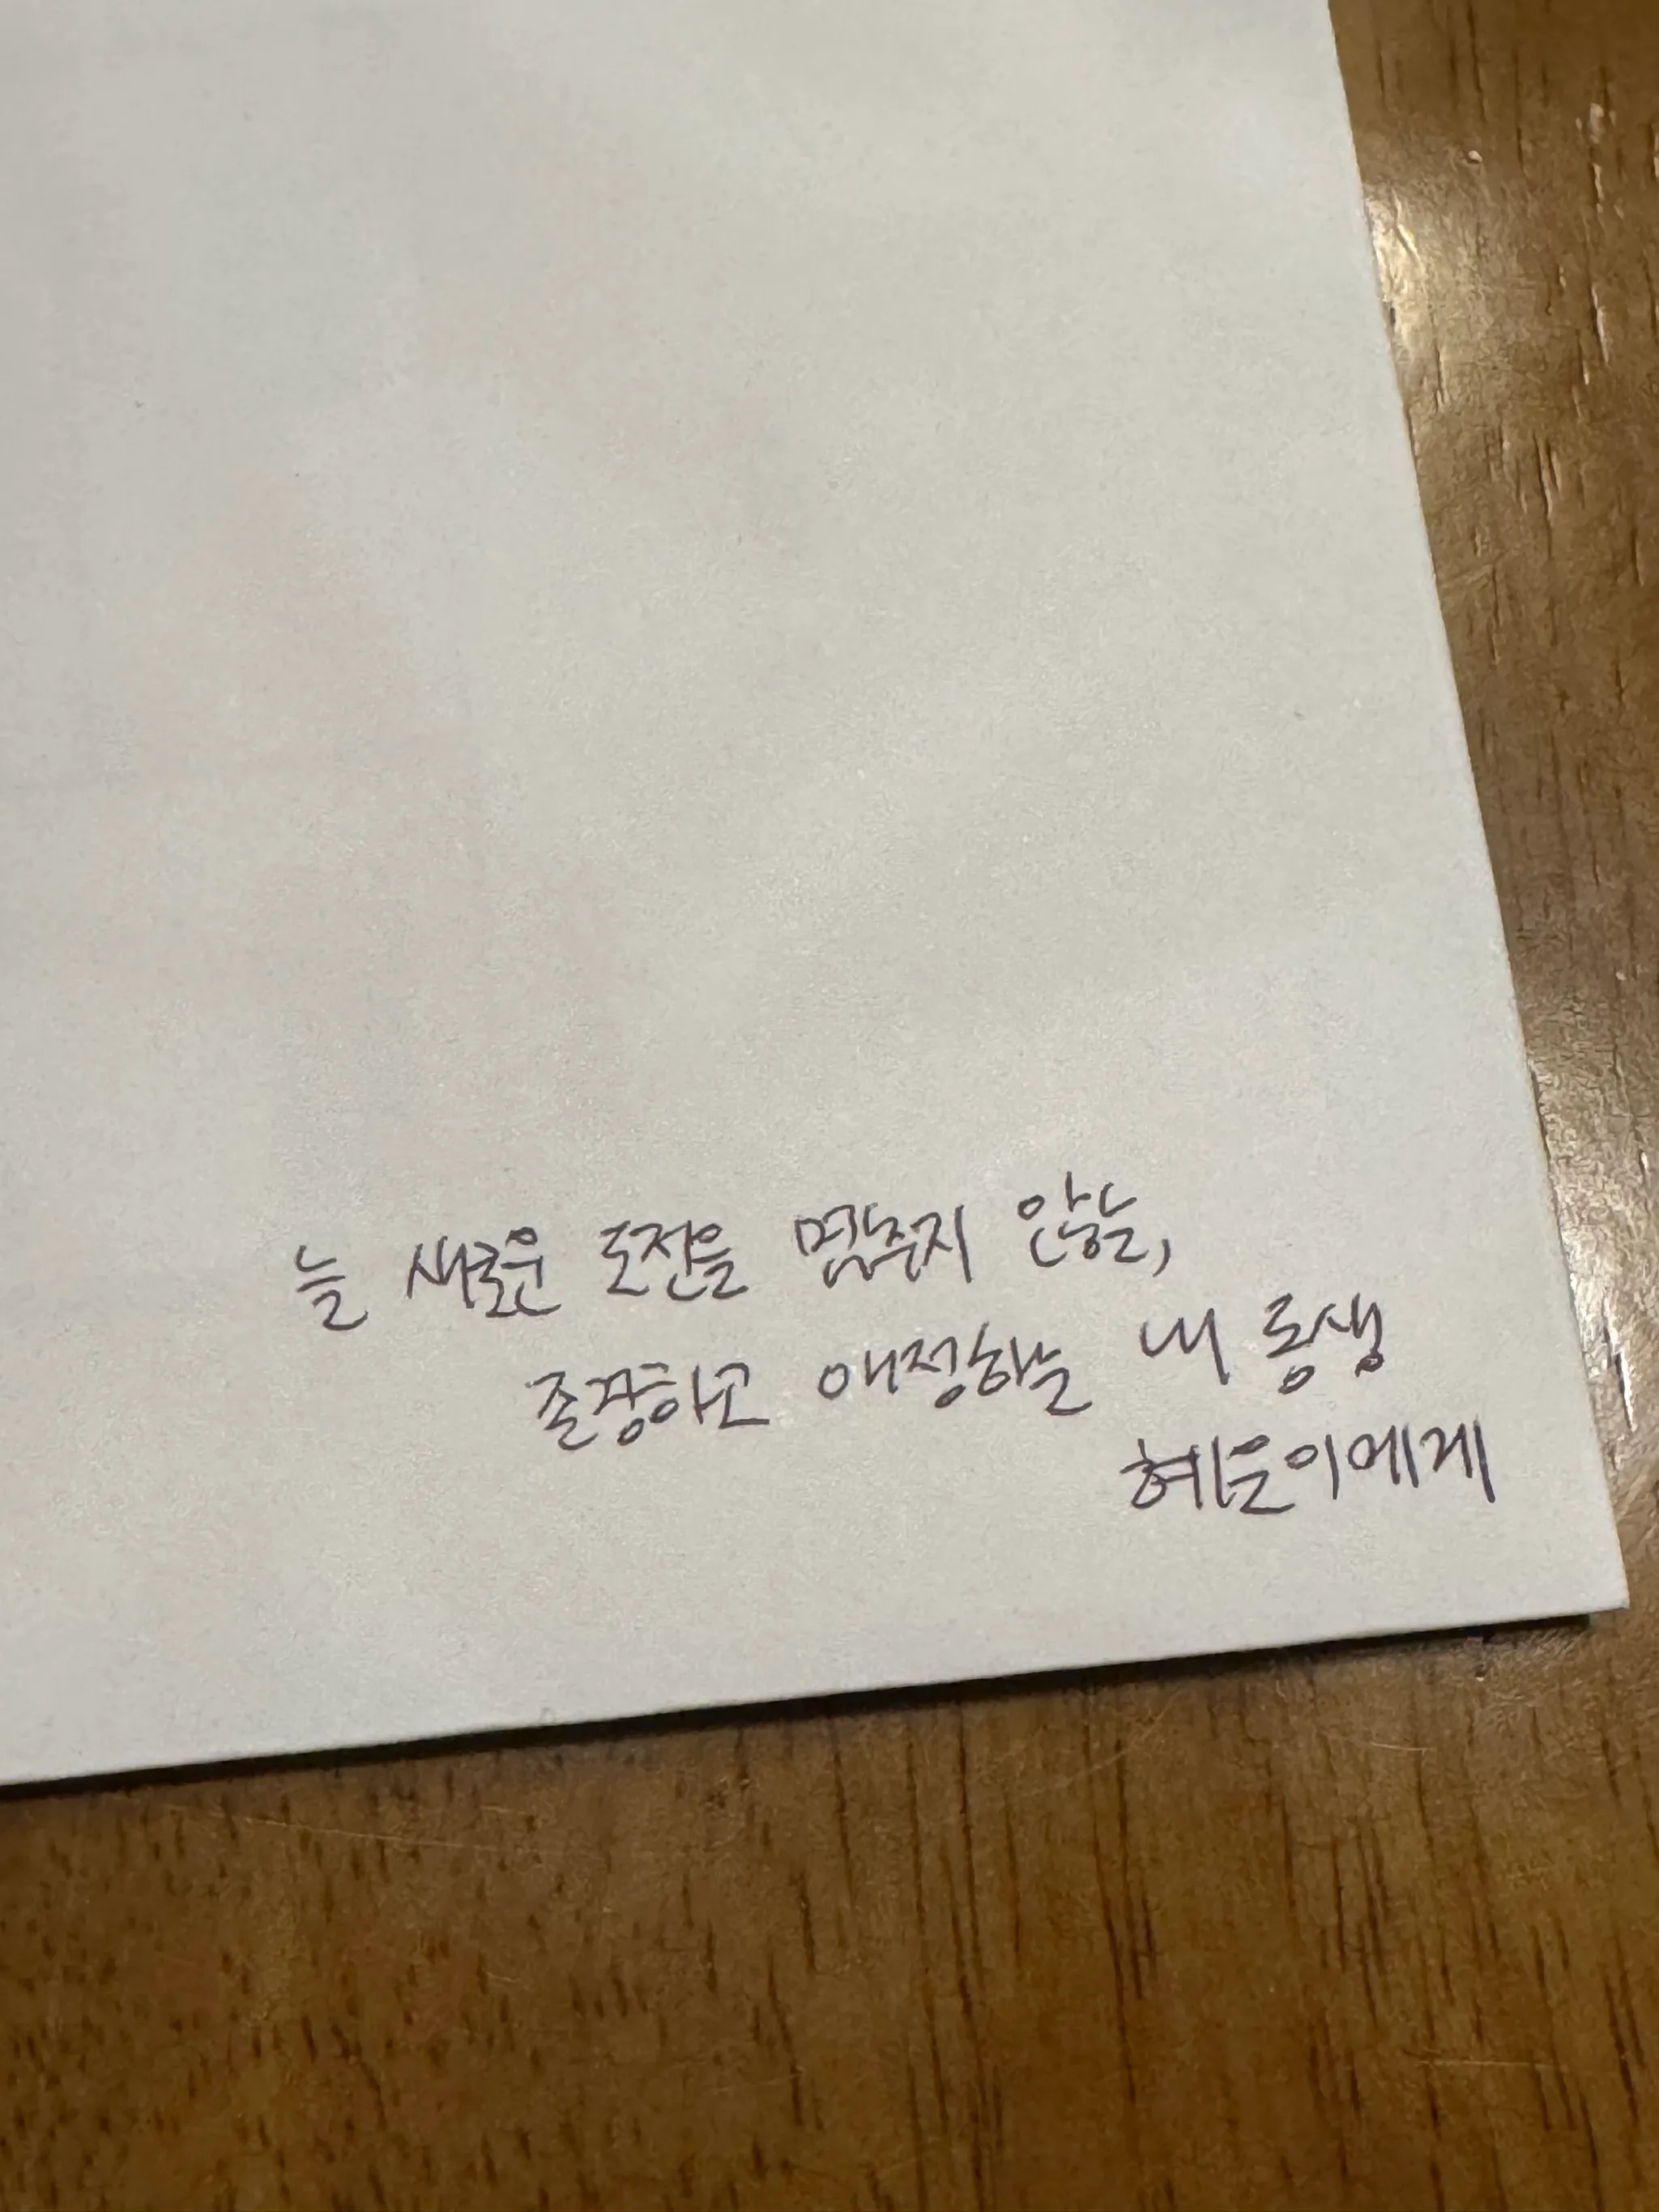 늘 새로운 도전을 멈추지 않는,
존경하고 애정하는 내 동생
혜은이에게